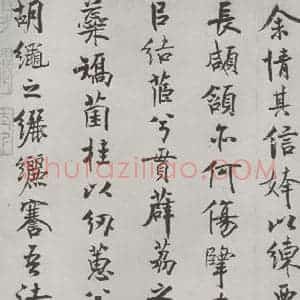 余情其信姱以練要
長顑頷亦何傷擥
以結茝兮貫薜荔之
蘂矯菌桂以紉蕙兮
胡繩之纚麗謇吾法
shufaziliao.com